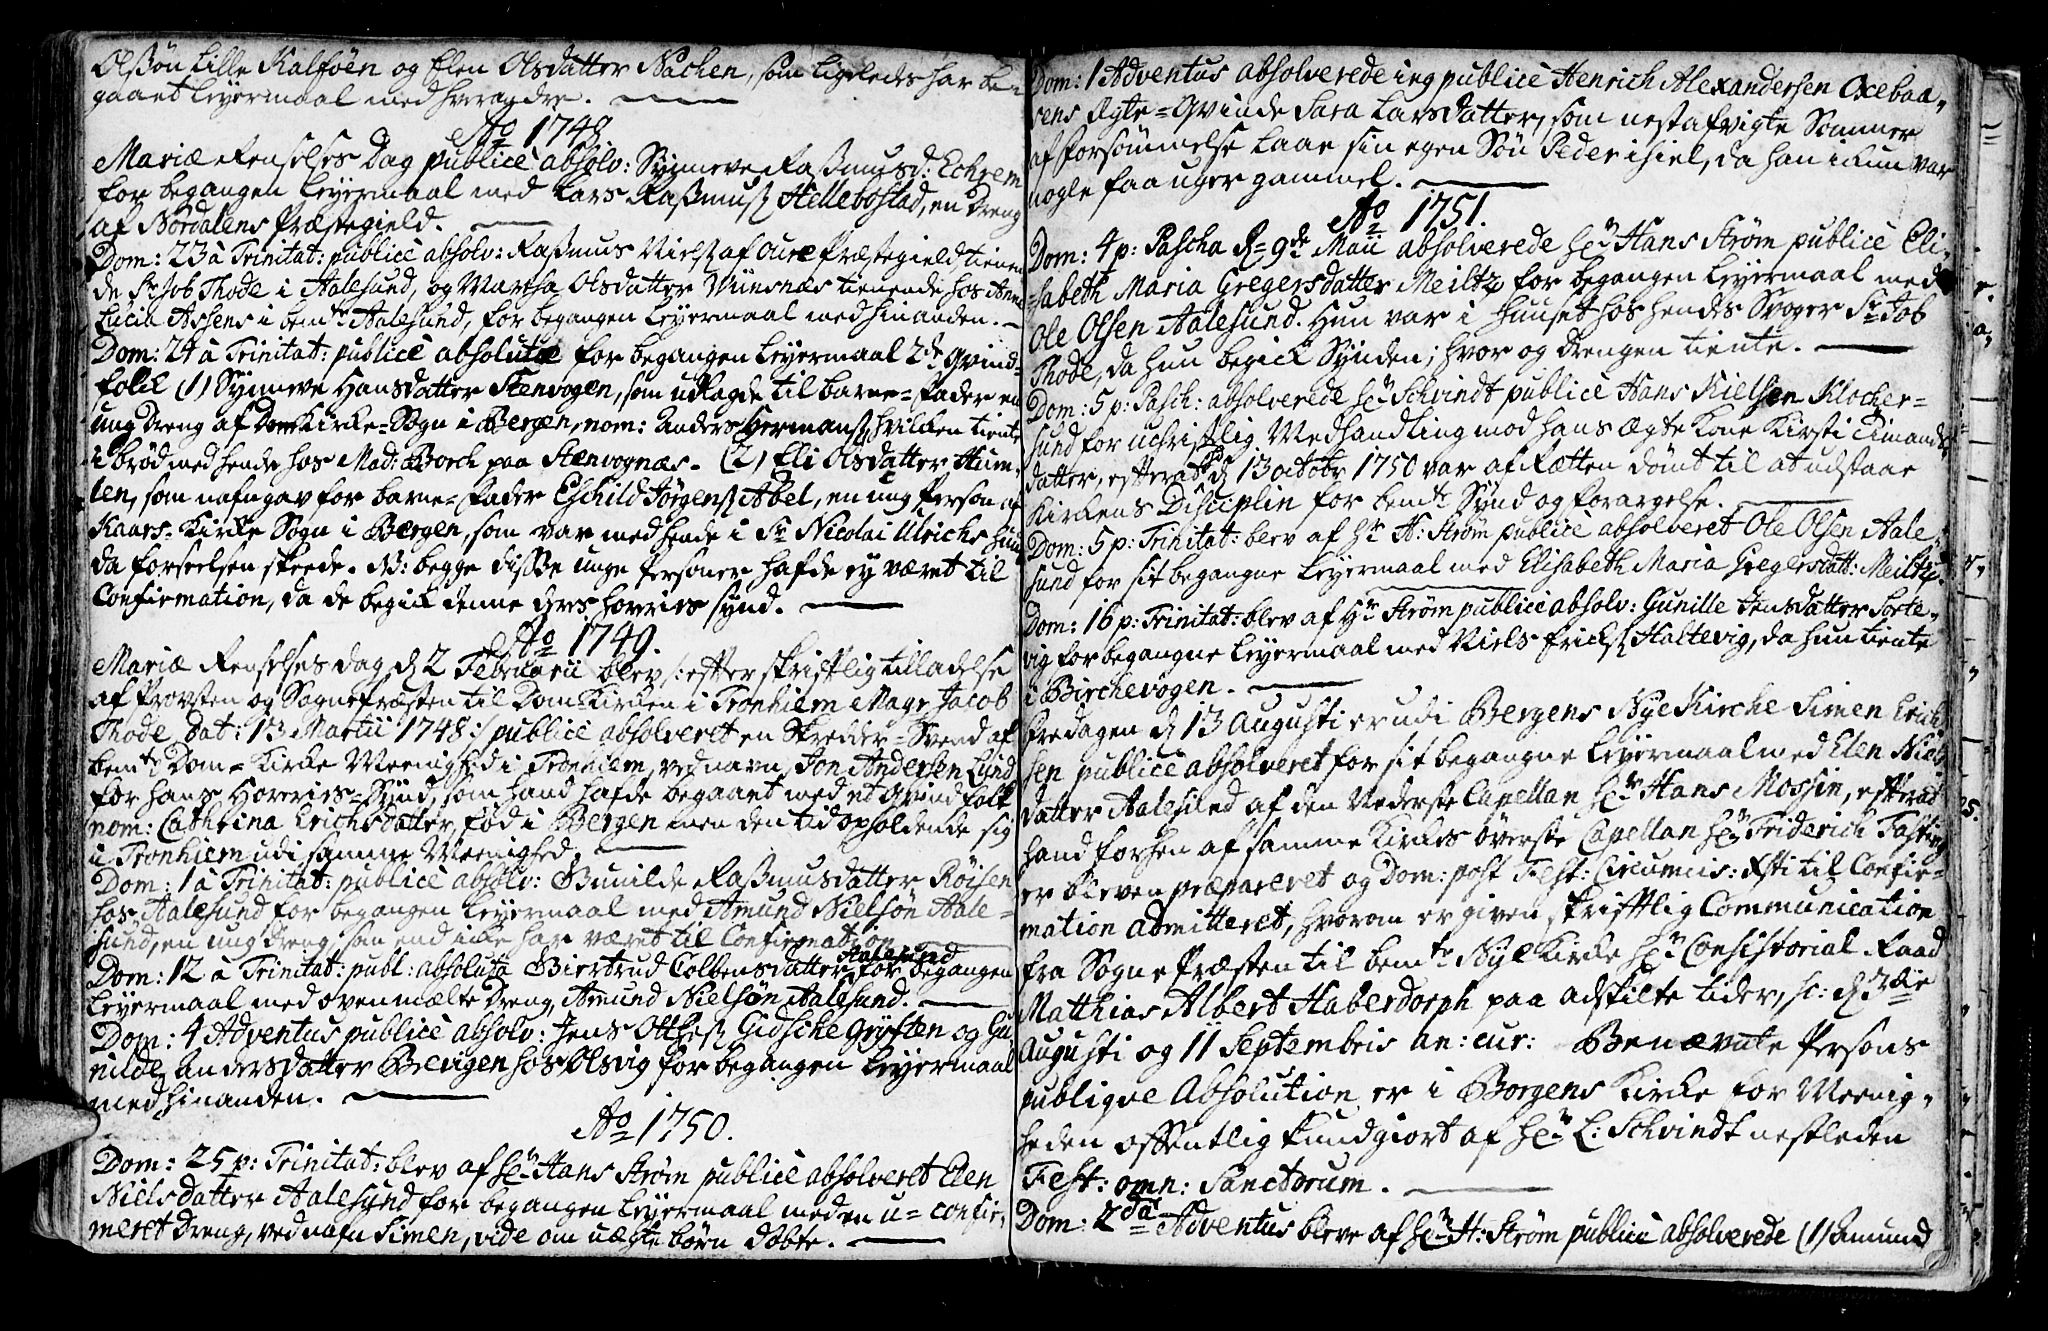 Olssøn Lille Kalføen og Elen Olsdatter Nachen, som ligeledes har be-
gaaet Leyermaal med hverandre.
Ao 1748
Mariæ Renselses Dag publicè absolv: Synneve Rassmusd: Echrem
for begangen Leyermaal med Lars Rassmuss Hellebostad, en Dreng
af Nordalens Præstegield.
Dom: 23 à Trinitat: publicè absolv: Rassmus Nielss af Oure Præstegield tienen
de Sr Job Thode i Aalesund, og Martha Olsdatter tienende hos Anne
Lucia Assens i bemte Aalesund, for begangen Leyermaal med hinanden.
Dom: 24 à Trinitat: publicè absolutæ for begangen Leyermaal 2de Qvind-
folck (1) Synneve Hansdatter Stenvogen, som udlagde til barne-Fader en
ung Dreng af DomKirke-Sogn i Bergen, nom: Anders Hermanss hvilken tiente
i brød med hende hos Mad: Borch paa Stenvognæs. (2) Eli Olsdatter Hum-
len, som nafngav for barne-Fader Eschild Jørgenss Abel, en ung Person af
Kaars-Kirke Sogn i Bergen, som var med hende i Sr Nicolai Ulrichs huus
da forseelsen skeede. NB: begge disse unge Personer hafde ey været til
Confirmation, da de begick denne synd.
Ao 1749.
Mariæ Renselses dag d 2 Februarii blev /: efter skriftlig tilladelse
af Provsten og Sognepræsten til Dom-Kirken i Tronhiem Magr Jacob
Thode, dat: 13 Martii 1748 :/ publicè absolveret en Skredder-Svend af
bemte Dom-Kirke Meenighed i Tronhiem, ved navn Jon Andersen Lund
for hans Horeries-Synd, som hand hafde begaaet med et Qvindfolk
nom: Cathrina Erichsdatter, fød i Bergen men den tid opholdende sig
i Tronhiem udi samme Meenighed.
Dom: 1 à Trinitat: publicè absolv: Gunilde Rassmusdatter Röisen
hos Aalesund for begangen Leyermaal med Amund Nielsøn Aale-
sund, en ung dreng, som end icke har været til Confirmation
Dom: 12 à Trinitat: publ: absoluta Giertrud Colbensdatter Aalesund for begangen
Leyermaal med ovenmælte Dreng, Amund Nielsøn Aalesund.
Dom: 4 Adventus publicè absolv: Jens Ottess Gidsche og Gu
nilde Andersdatter hos Olsvig for begangen Leyermaal
med hinanden.
Ao 1750.
Dom: 25 p: Trinitat: blev af Hr Hans Strøm publicè absolveret Elen
Nielsdatter Aalesund for begangen Leyermaal med en u-confir-
meret Dreng, ved nafn Simen, vide om uægte børn døbte.
Dom: 1 Adventus absolverede ieg publicè Henrich Alexandersen Oxebaa-
sens Ægte-Qvinde Sara Larsdatter, som nestafvigte Sommer
af forsømmelse laae sin egen Søn Peder ihiel, da han ikun var
nogle faa uger gammel.
Ao 1751.
Dom: 4 p: Pascha d 9de Maii absolverede Hr Hans Strøm publicè Eli-
sabeth Maria Gregersdatter Meiltz for begangen Leyermaal med
Ole Olsen Aalesund. Hun var i huuset hos hendes Svoger Sr Job
Thode, da hun begick Synden; hvor og Drengen tiente.
Dom: 5 p: Pasch: absolverede Hr Schvindt publicè Hans Nielsen Klocker-
sund for uchristlig Medhandling mod hans Ægte Kone Kirsti Timands
datter, efterat d 13 octobr 1750 var af Rætten dømt til at udstaae
Kirkens Disciplin for bemte Synd og forargelse.
Dom: 5 p: Trinitat: blev af Hr H: Strøm publicè absolveret Ole Olsen Aale-
sund for sit begangne Leyermaal med Elisabeth Maria Gregersdatt: Meiltz
Dom: 16 p: Trinitat: blev af Hr Strøm publicè absolv: Gunille Jensdatter Sorte-
vig for begangne Leyermaal med Niels Erickss Haltevig, da hun tiente
i Birchevogen.
Fredagen d 13 Augusti er udi Bergens Nye Kirche Simen Erich
sen publicè absolveret for sit begangne Leyermaal med Elen Niels
datter Aalesund af den Nederste Capellan Hr Hans Mossin, efterat
hand forhen af samme Kirkes øverste Capellan Hr Friderich Fasting
er bleven præpareret og Dom: post Fest: Circumcis: Xsti til Confir-
mation admitteret, hvorom er given skrifftlig Communication
fra Sogne Præsten til bemte Nye Kirke Hr Consistorial-Raad
Matthias Albert Haberdorph paa adskilte tider, sc: d
Augusti og 11 Septembris an: cur: Benævnte Persons
publiqve Absolution er i Borgens Kirke for Meenig-
heden offentlig kundgiort af Hr L: Schvindt nestleden
Fest: omn: Sanctorum.
Dom: 2da Adventus bleve af Hr H: Strøm publicè absolverede (1) Amund